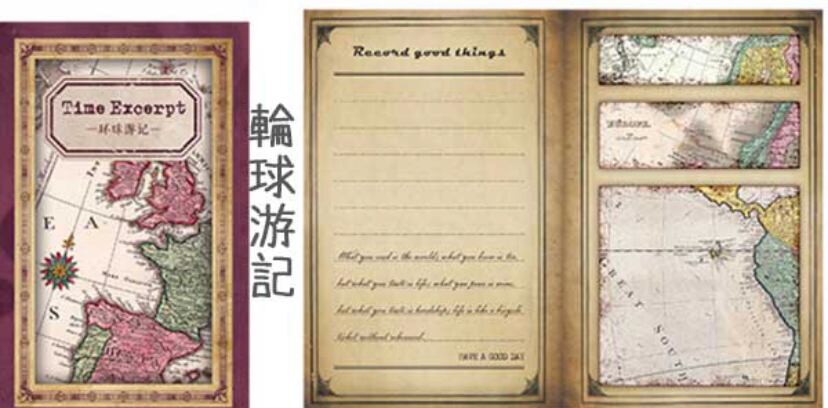 Time Excerpt
—环球游记—
E A
S
輪球游記
Record good things
What you read is the world, what you brew is tea,
but what you taste is life; what you pour is wine,
but what you taste is hardship; life is like a bicycle
ticket without rebound.
HAVE A GOOD DAY
EUROPE.
GREAT SOUTH